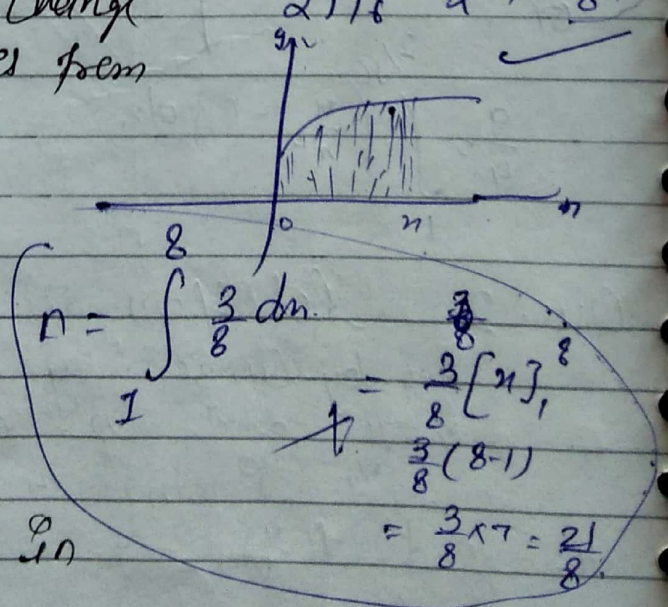 Change
es from
y
0 x x
n = ∫₁⁸ 3/8 dx.
= 3/8 [x]₁⁸
3/8 (8-1)
= 3/8 × 7 = 21/8.
In